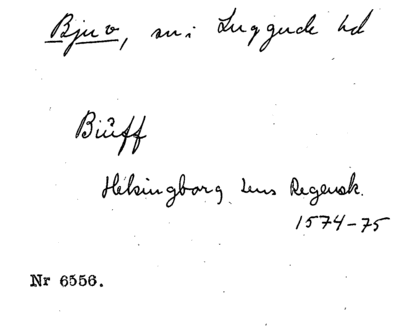 Bjuv, sn i Luggude hd
Biuff
Helsingborg Lens Regensk.
1574-75
Nr 6556.